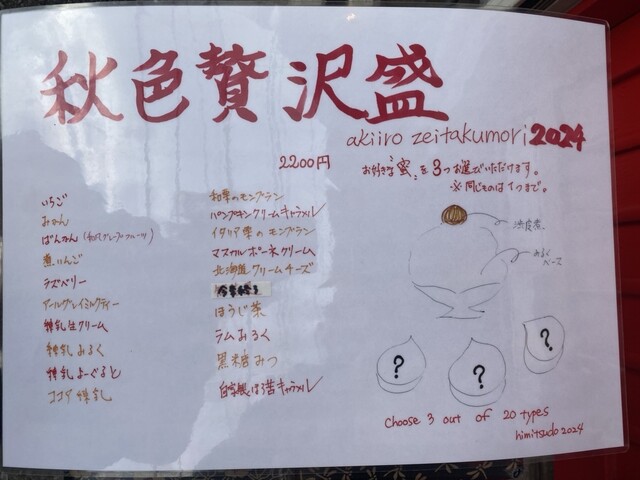 秋色贅沢盛
akiiro zeitakumori 2024
2200円
お好きな蜜を3つお選びいただけます。
※同じものは1つまで。
いちご
みかん
ばんかん(和風グレープフルーツ)
煮りんご
ラズベリー
アールグレイミルクティー
練乳生クリーム
練乳みるく
練乳よーぐると
ココア練乳
和栗のモンブラン
パンプキンクリームキャラメル
イタリア栗のモンブラン
マスカルポーネクリーム
北海道クリームチーズ
ほうじ茶
ラムみるく
黒糖みつ
自家製ほろ苦キャラメル
渋皮煮
みるく
ベース
?
?
?
choose 3 out of 20 types
himitsudo 2024